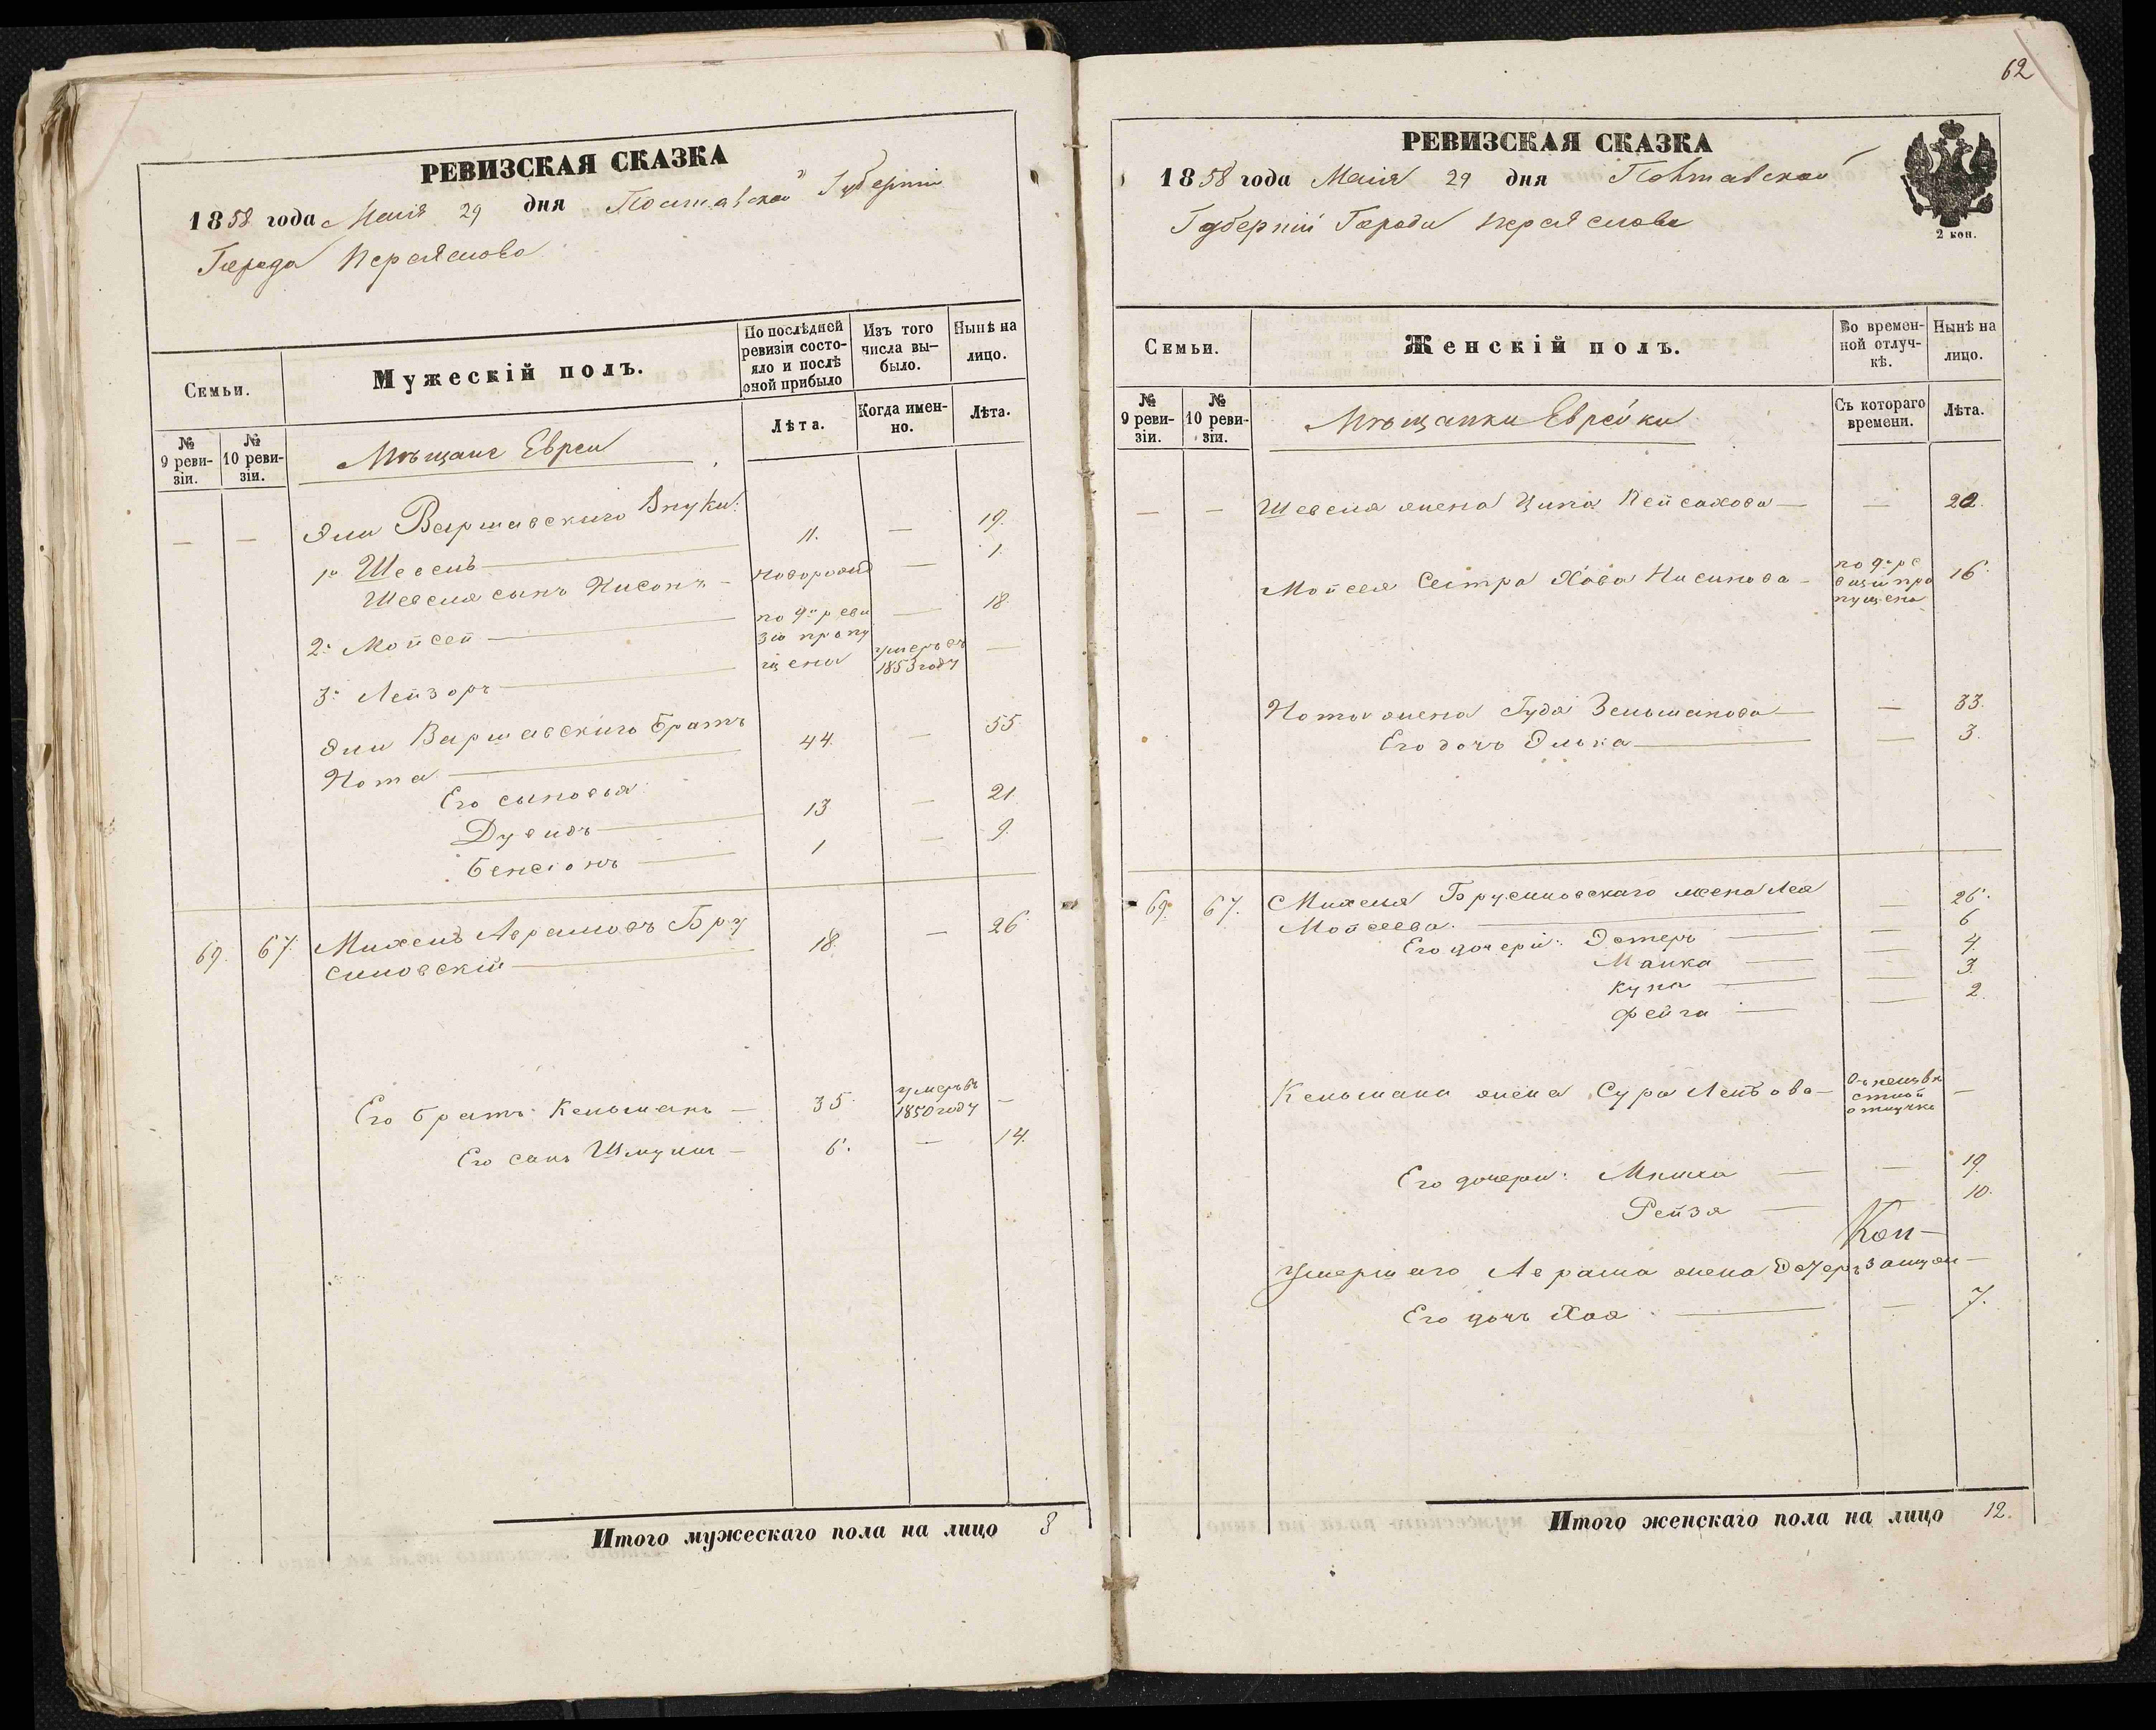 РЕВИЗСКАЯ СКАЗКА
1858 года Маія 29 дня Полтавской Губерніи
Города Переяслова
Семьи.
Мужескій полъ.
По послѣдней ревизіи состояло и послѣ оной прибыло
Изъ того числа выбыло.
Нынѣ на лицо.
№ 9 ревизіи.
№ 10 ревизіи.
Мѣщане Евреи
Лѣта.
Когда именно.
Лѣта.
— — Эли Варшавского Внуки:
1й Шевель — 11. — 19.
Шевеля сынъ Нисонъ — новорожд — 1.
2й Мойсей — по 9й реви — 18
зіи пропу
щены
3й Лейзоръ — умеръ въ 1853 году —
Эли Варшавского братъ
Нота — 44. — 55.
Его сыновья
Дувидъ — 13 — 21
Бенсіонъ — 1 — 9.
69. 67. Михель Аврамовъ Бру
синовскій — 18. — 26
Его братъ Кельманъ — 35. умеръ въ 1850 году —
Его сынъ Шмуль — 6. — 14.
Итого мужескаго пола на лицо 8
62
РЕВИЗСКАЯ СКАЗКА
1858 года Маія 29 дня Полтавской
Губерніи Города Переяслова
2 коп.
Семьи.
Женскій полъ.
Во временной отлучкѣ.
Нынѣ на лицо.
№ 9 ревизіи.
№ 10 ревизіи.
Мѣщанки Еврейки
Съ котораго времени.
Лѣта.
— — Шевеля жена Ципа Пейсахова — — 22.
Мойсея Сестра Хава Нисинова — по 9й ре
визіи про
пущена 16.
Ноты жена Гуда Зельманова — — 33.
Его дочь Элька — — 3.
69. 67. Михеля Брусиновскаго жена Лея
Мойсеева. — — 26.
Его дочери: Эстеръ — — 6
Малка — — 4.
Куна — — 3.
Фейга — — 2.
Кельмана жена Сура Лейбова — Въ неизвѣ
стной
отлучке —
Его дочери: Мниха — — 19.
Рейза — — 10.
Умершаго Аврама жена Эстеръ
Его дочь Хая — — 7.
Итого женскаго пола на лицо 12.